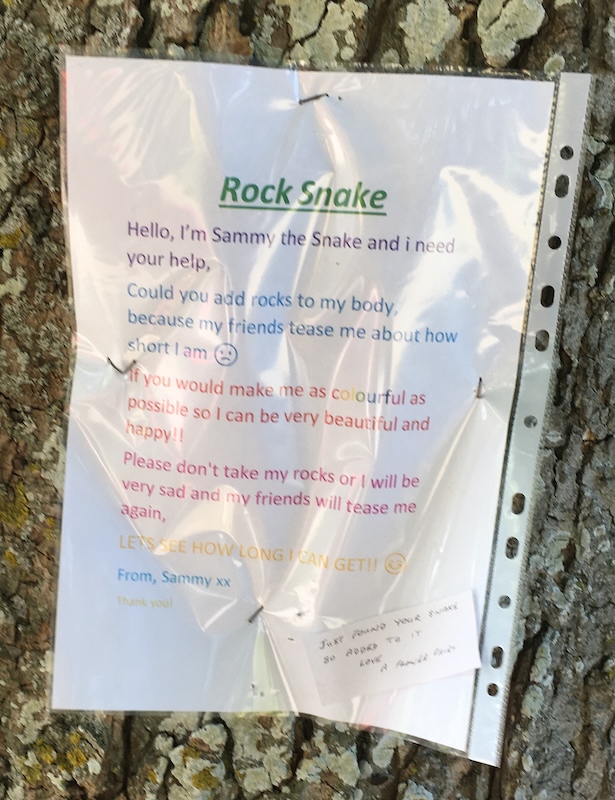 Rock Snake
Hello, I'm Sammy the Snake and i need
your help,
Could you add rocks to my body,
because my friends tease me about how
short I am ☹
If you would make me as colourful as
possible so I can be very beautiful and
happy!!
Please don't take my rocks or I will be
very sad and my friends will tease me
again,
LETS SEE HOW LONG I CAN GET!! 😊
From, Sammy xx
Thank you!
JUST FOUND YOUR SNAKE
SO ADDED TO IT
LOVE
A FLOWER FAIRY